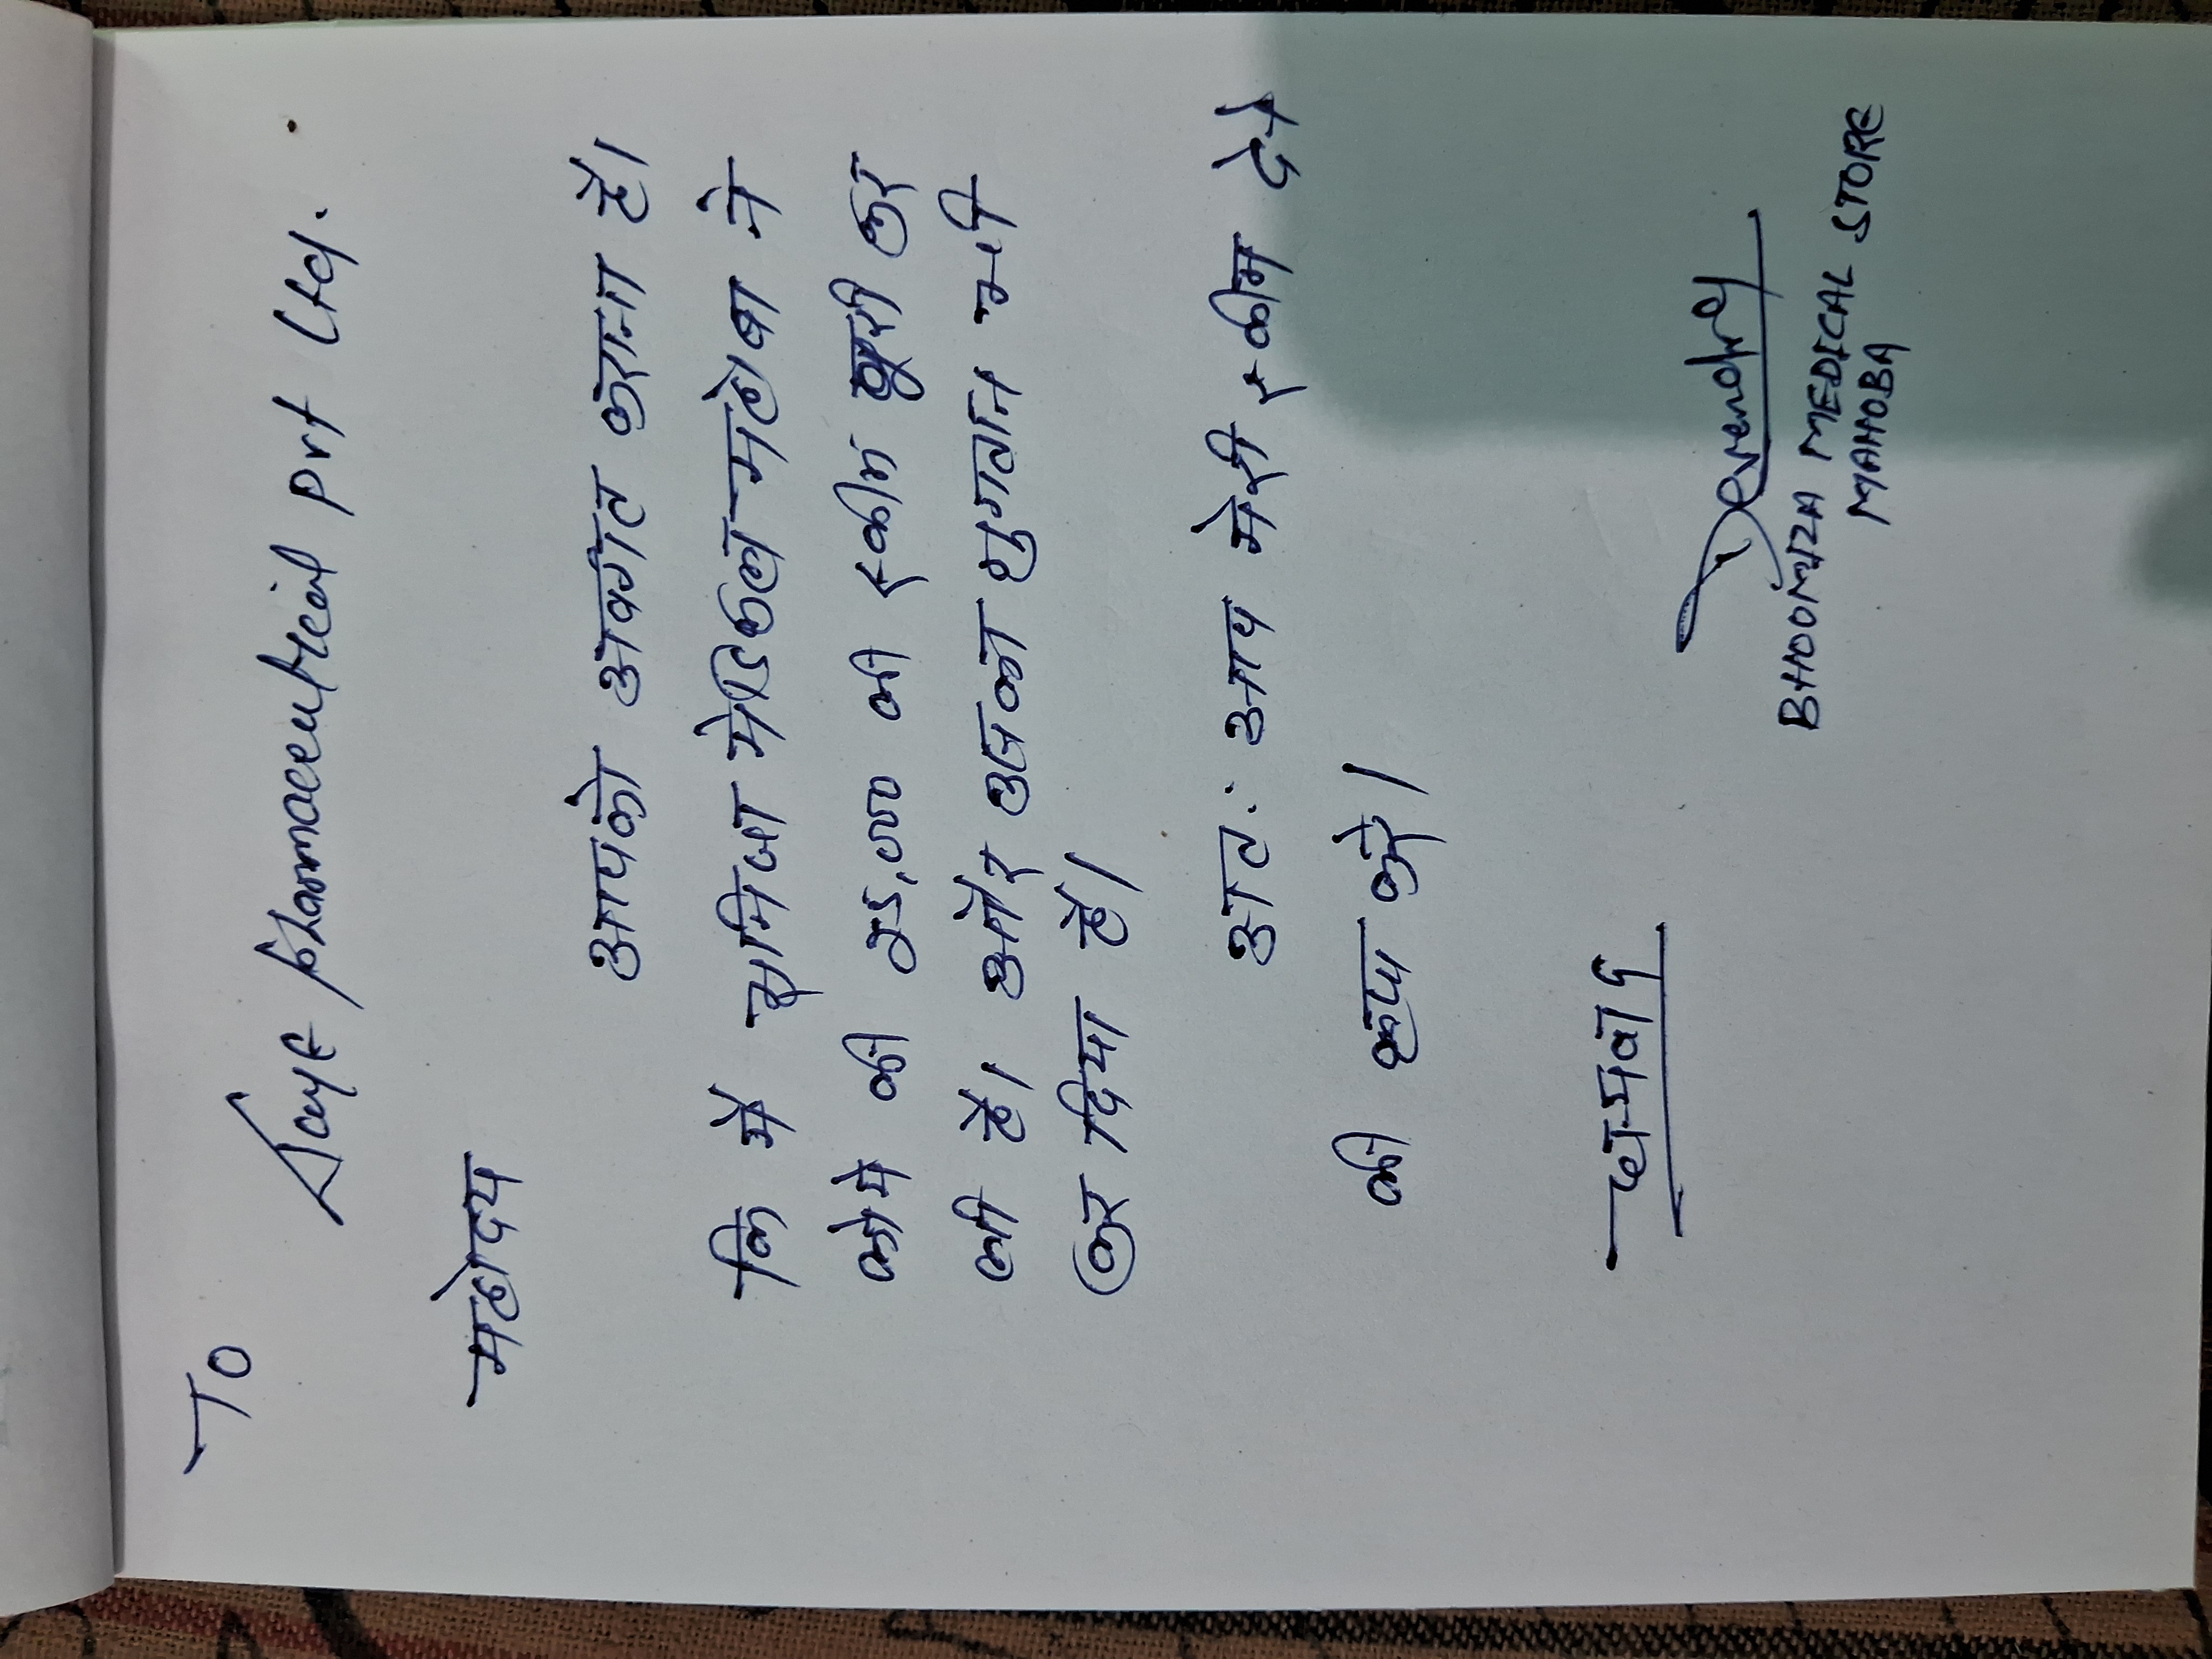 To
pharmaceutical Pvt Ltd.
महोदय
आपको अवगत कराना है।
कि मैं भूमिजा मेडिकल महोबा ने
की स्कीम पूरी कर
ली है। और उसका भुगतान भी
कर दिया है।
अतः आप मेरी स्कीम देने
की कृपा करें।
धन्यवाद
Devendra
BHOOMIZA MEDICAL STORE
MAHOBA